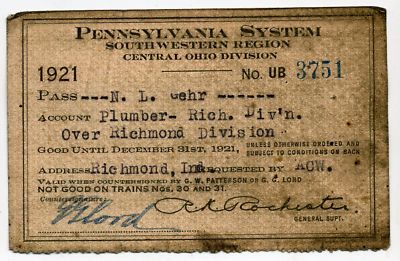 PENNSYLVANIA SYSTEM
SOUTHWESTERN REGION
CENTRAL OHIO DIVISION
1921 No. UB 3751
PASS ---N. L. Gehr ------
ACCOUNT Plumber- Rich. Div'n.
Over Richmond Division
GOOD UNTIL DECEMBER 31ST, 1921, UNLESS OTHERWISE ORDERED AND SUBJECT TO CONDITIONS ON BACK
ADDRESS Richmond, Ind. REQUESTED BY ACW.
VALID WHEN COUNTERSIGNED BY G. W. PATTERSON OR G. C. LORD
NOT GOOD ON TRAINS NOS. 30 AND 31.
Countersignature:
Lord R.K. Rochester
GENERAL SUPT.